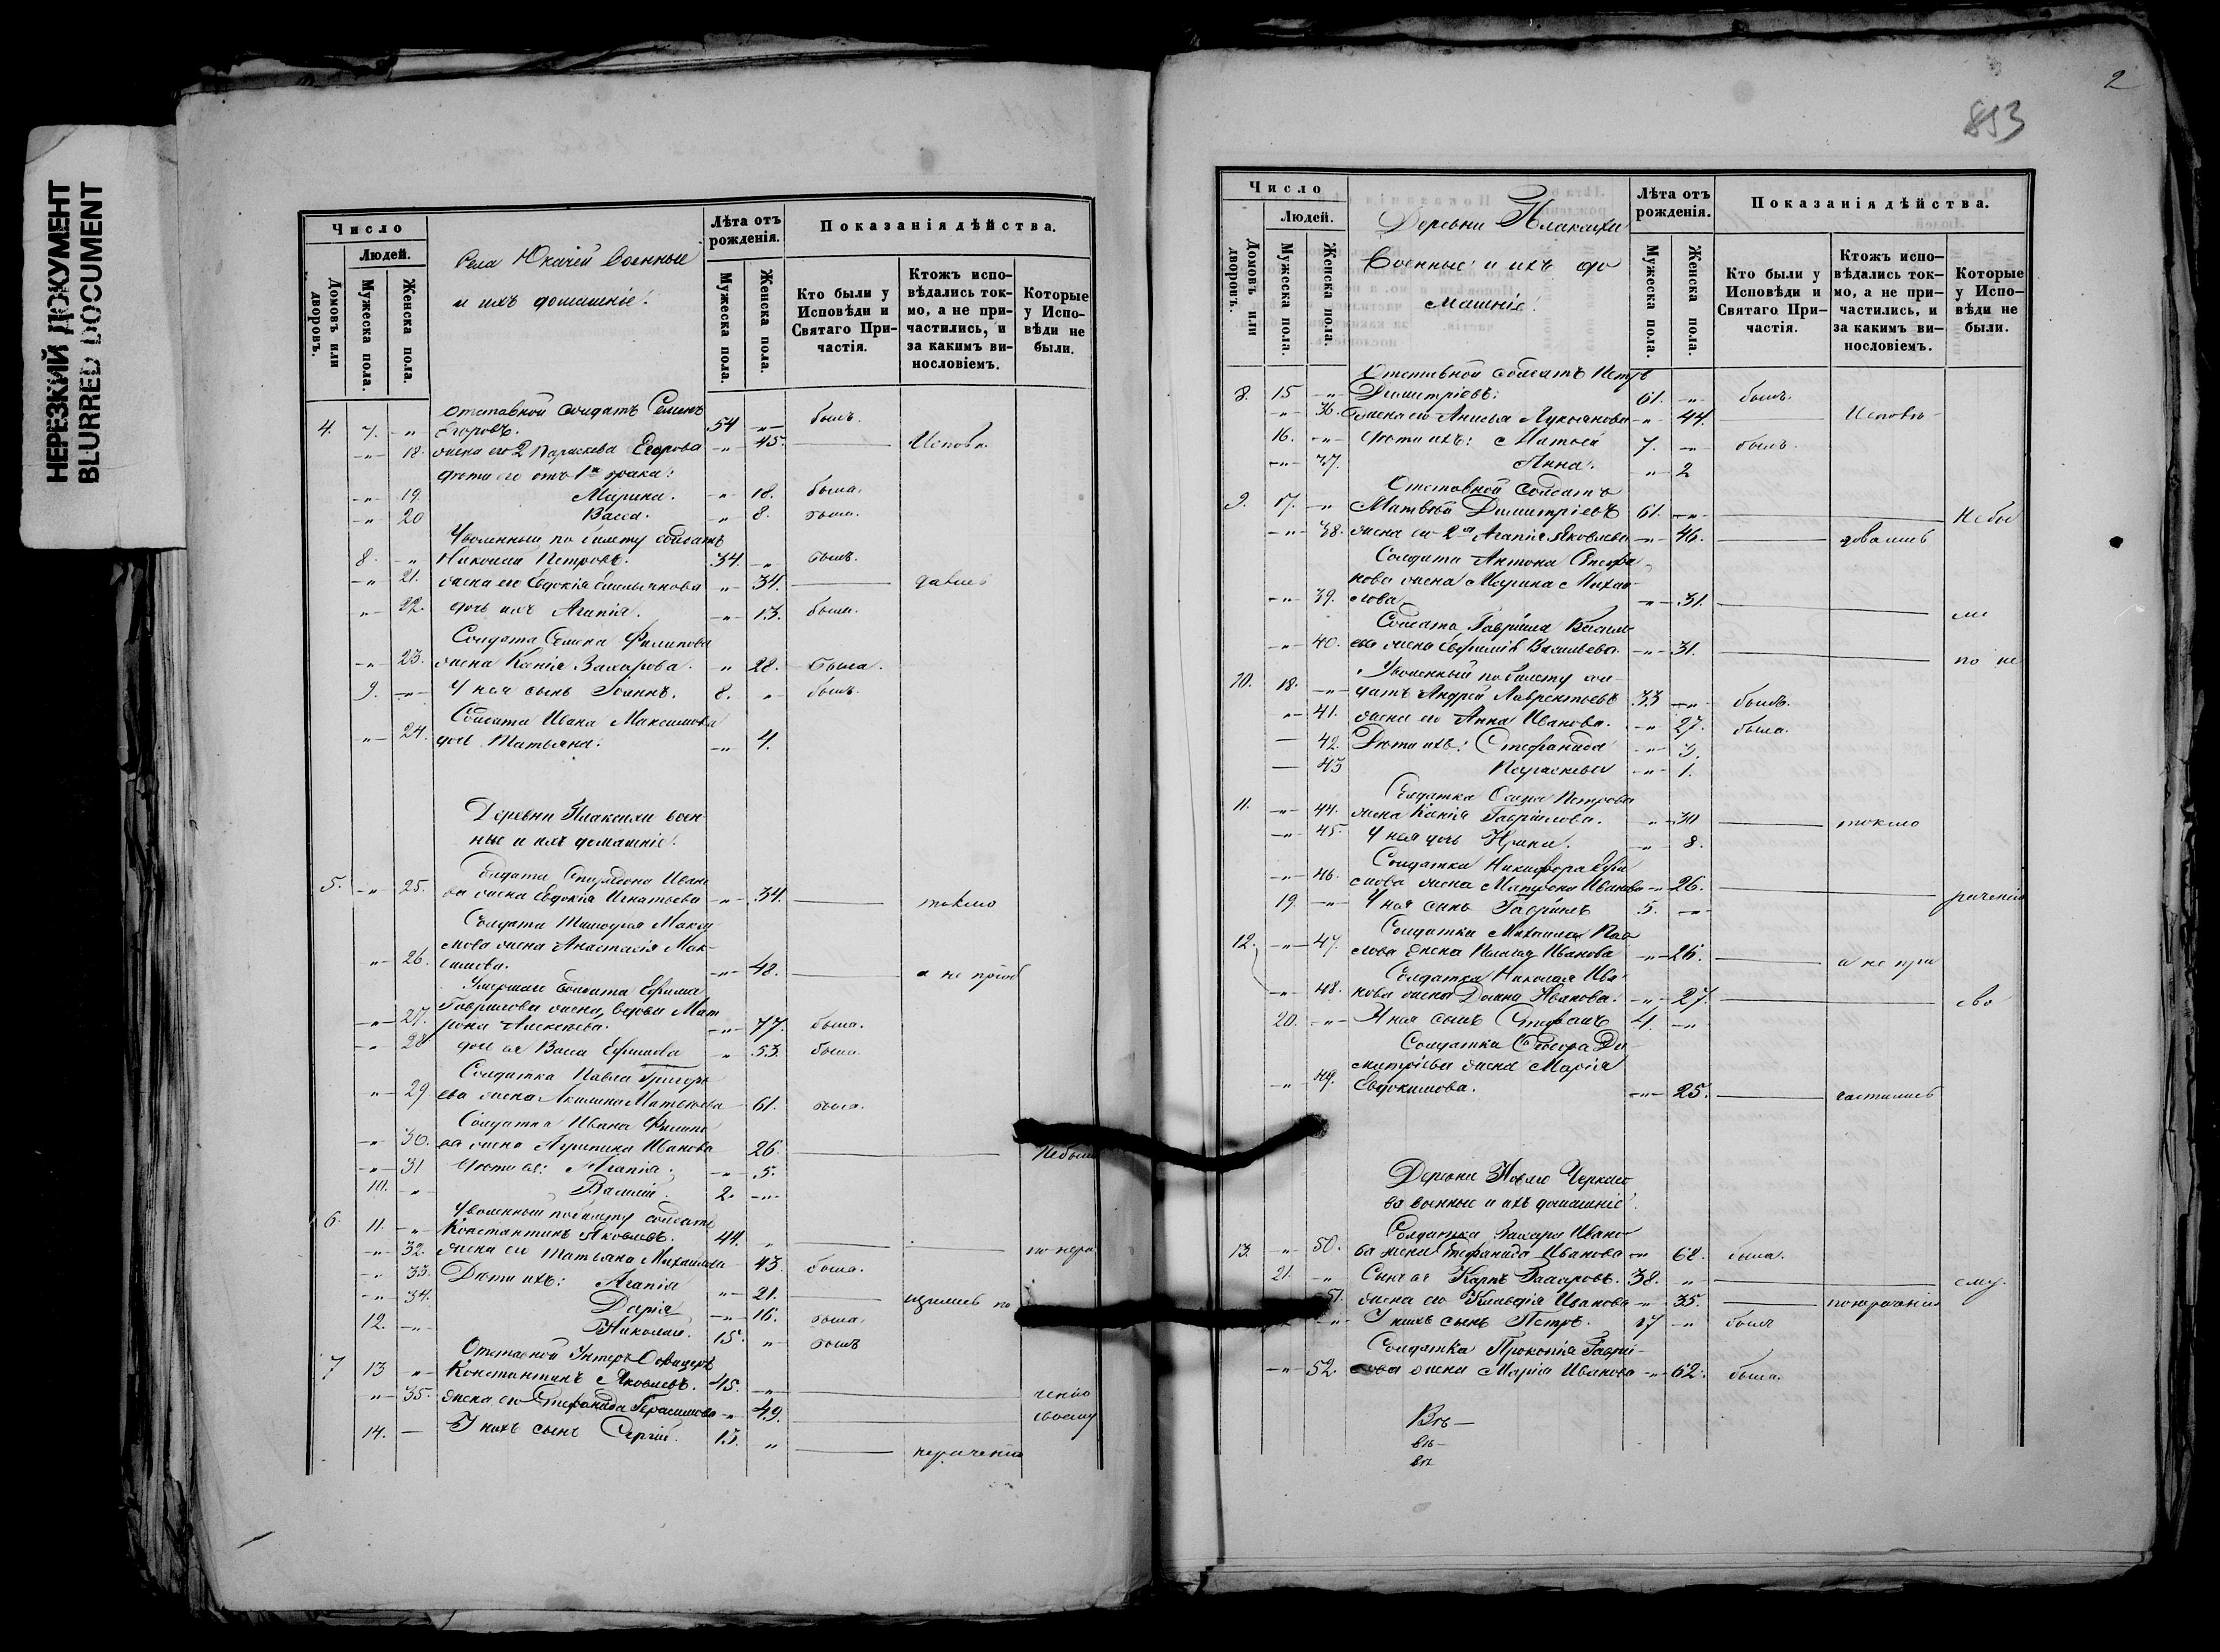 НЕРЕЗКИЙ ДОКУМЕНТ
BLURRED DOCUMENT
Число
Людей.
Домовъ или дворовъ.
Мужеска пола.
Женска пола.
Села Юкачей военные
и ихъ домашніе.
Лѣта отъ рожденія.
Мужеска пола.
Женска пола.
Показанія дѣйства.
Кто были у Исповѣди и Святаго Причастія.
Ктожъ исповѣдались токмо, а не причастились, и за какимъ винословіемъ.
Которые у Исповѣди не были.
Отставной солдатъ Семенъ
4. 7. -"- Егоровъ. 54 -"- былъ.
-"- 18. жена его 2 Параскева Егорова -"- 45. Исповѣ
дѣти его отъ 1го брака:
-"- 19. Марина. -"- 18. была.
-"- 20 Васса. -"- 8. была.
Уволенный по билету солдатъ
8. -"- Николай Петровъ. 34. -"- былъ.
-"- 21. жена его Евдокія Емельянова -"- 34. дались
-"- 22. дочь ихъ Агапія. -"- 13. была.
Солдата Семена Филипова
-"- 23. жена Ксенія Захарова. -"- 28. была.
9. -"- У нея сынъ Іоаннъ. 8. -"- былъ.
Солдата Ивана Максимова
-"- 24. дочь Татьяна. -"- 4.
Деревни Плаксихи воен-
ные и ихъ домашніе.
Солдата Спиридона Ивано
5. -"- 25. ва жена Евдокія Игнатьева -"- 34. токмо
Солдата Тимофея Макси
мова жена Анастасія Мак-
-"- 26. симова. -"- 48. а не приоб
Умершаго солдата Ефима
-"- 27. Гаврилова жена, вдова Мат
рона Алексѣева. -"- 77. была.
-"- 28 дочь ея Васса Ефимова -"- 53. была.
Солдатка Павла Григорь
-"- 29 ева жена Акилина Матвѣева 61. была.
Солдатка Ивана Филипо
-"- 30. ва жена Агрипина Иванова 26. Небыли
-"- 31 Дѣти ея: Агапія. -"- 5.
10. -"- Василій. 2. -"-
Уволенный по билету солдатъ
6. 11. -"- Константинъ Яковлевъ. 44. -"- по нера
-"- 32. жена его Татьяна Михайлова 43. была.
-"- 33. Дѣти ихъ: Агапія -"- 21. щились по
-"- 34. Дарія -"- 16. была.
12. -"- Николай. 15. -"- былъ
Отставной Унтеръ Офицеръ
7 13 -"- Константинъ Яковлевъ. 45. -"- ченію
-"- 35. жена его Стефанида Герасимова -"- 49. своему
14. — У нихъ сынъ Сергій. 13. -"- нерачению
2
853
Число
Людей.
Домовъ или дворовъ.
Мужеска пола.
Женска пола.
Деревни Плаксихи
Военные и ихъ до
машніе.
Лѣта отъ рожденія.
Мужеска пола.
Женска пола.
Показанія дѣйства.
Кто были у Исповѣди и Святаго Причастія.
Ктожъ исповѣдались токмо, а не причастились, и за какимъ винословіемъ.
Которые у Исповѣди не были.
Отставной солдатъ Петръ
8. 15 -"- Димитріевъ: 61. -"- былъ.
-"- 36. жена его Анисья Лукьянова -"- 44. Исповѣ-
16. -"- Дѣти ихъ: Матвей 7. -"- былъ.
-"- 37. Анна. -"- 2
Отставной солдатъ
9. 17. -"- Матвѣй Димитріевъ 61. -"- Небы
-"- 38. жена его 2-я Агапія Яковлева -"- 46. довались
Солдата Антона Стефа-
нова жена Марина Михаи-
-"- 39. лова -"- 31. ли
Солдата Гавріила Василь
-"- 40. ева жена Евфимія Васильева -"- 31. по не
Уволенный по билету сол-
10. 18. -"- датъ Андрей Лаврентьевъ 33 -"- былъ.
-"- 41. жена его Анна Иванова. -"- 27. была.
— 42. Дѣти ихъ: Стефанида -"- 3.
— 43 Параскева -"- 1.
Солдатка Осипа Петрова
11. -"- 44. жена Ксенія Гаврилова. -"- 30 токмо
-"- 45. У нея дочь Ирина. -"- 8.
Солдатки Никифора Ефи
-"- 46. мова жена Матрона Иванова -"- 26. рачению
19. -"- У нея сынъ Гавріилъ 5. -"-
Солдатки Михаила Пав
12. -"- 47. лова жена Иванова -"- 26. а не при
Солдатка Николая Ива
-"- 48. нова жена Домна Иванова. -"- 27. сво
20. -"- У нея сынъ Стефанъ 4. -"-
Солдатка Ѳедора Ди
митріева жена Марія
-"- 49. Евдокимова. -"- 25. частились
Деревни Новаго Черкасо
ва военные и ихъ домашніе.
Солдатка Захара Ивано
13. -"- 50. ва жена Стефанида Иванова -"- 68. была.
21. -"- Сынъ ея Карпъ Захаровъ. 38. -"- ему.
51. жена его Клавдія Иванова -"- 35. понерачению
-"- У нихъ сынъ Петръ. 17 -"- былъ
Солдатка Прокопія Гаври-
-"- 52. лова жена Марія Иванова -"- 62. была.